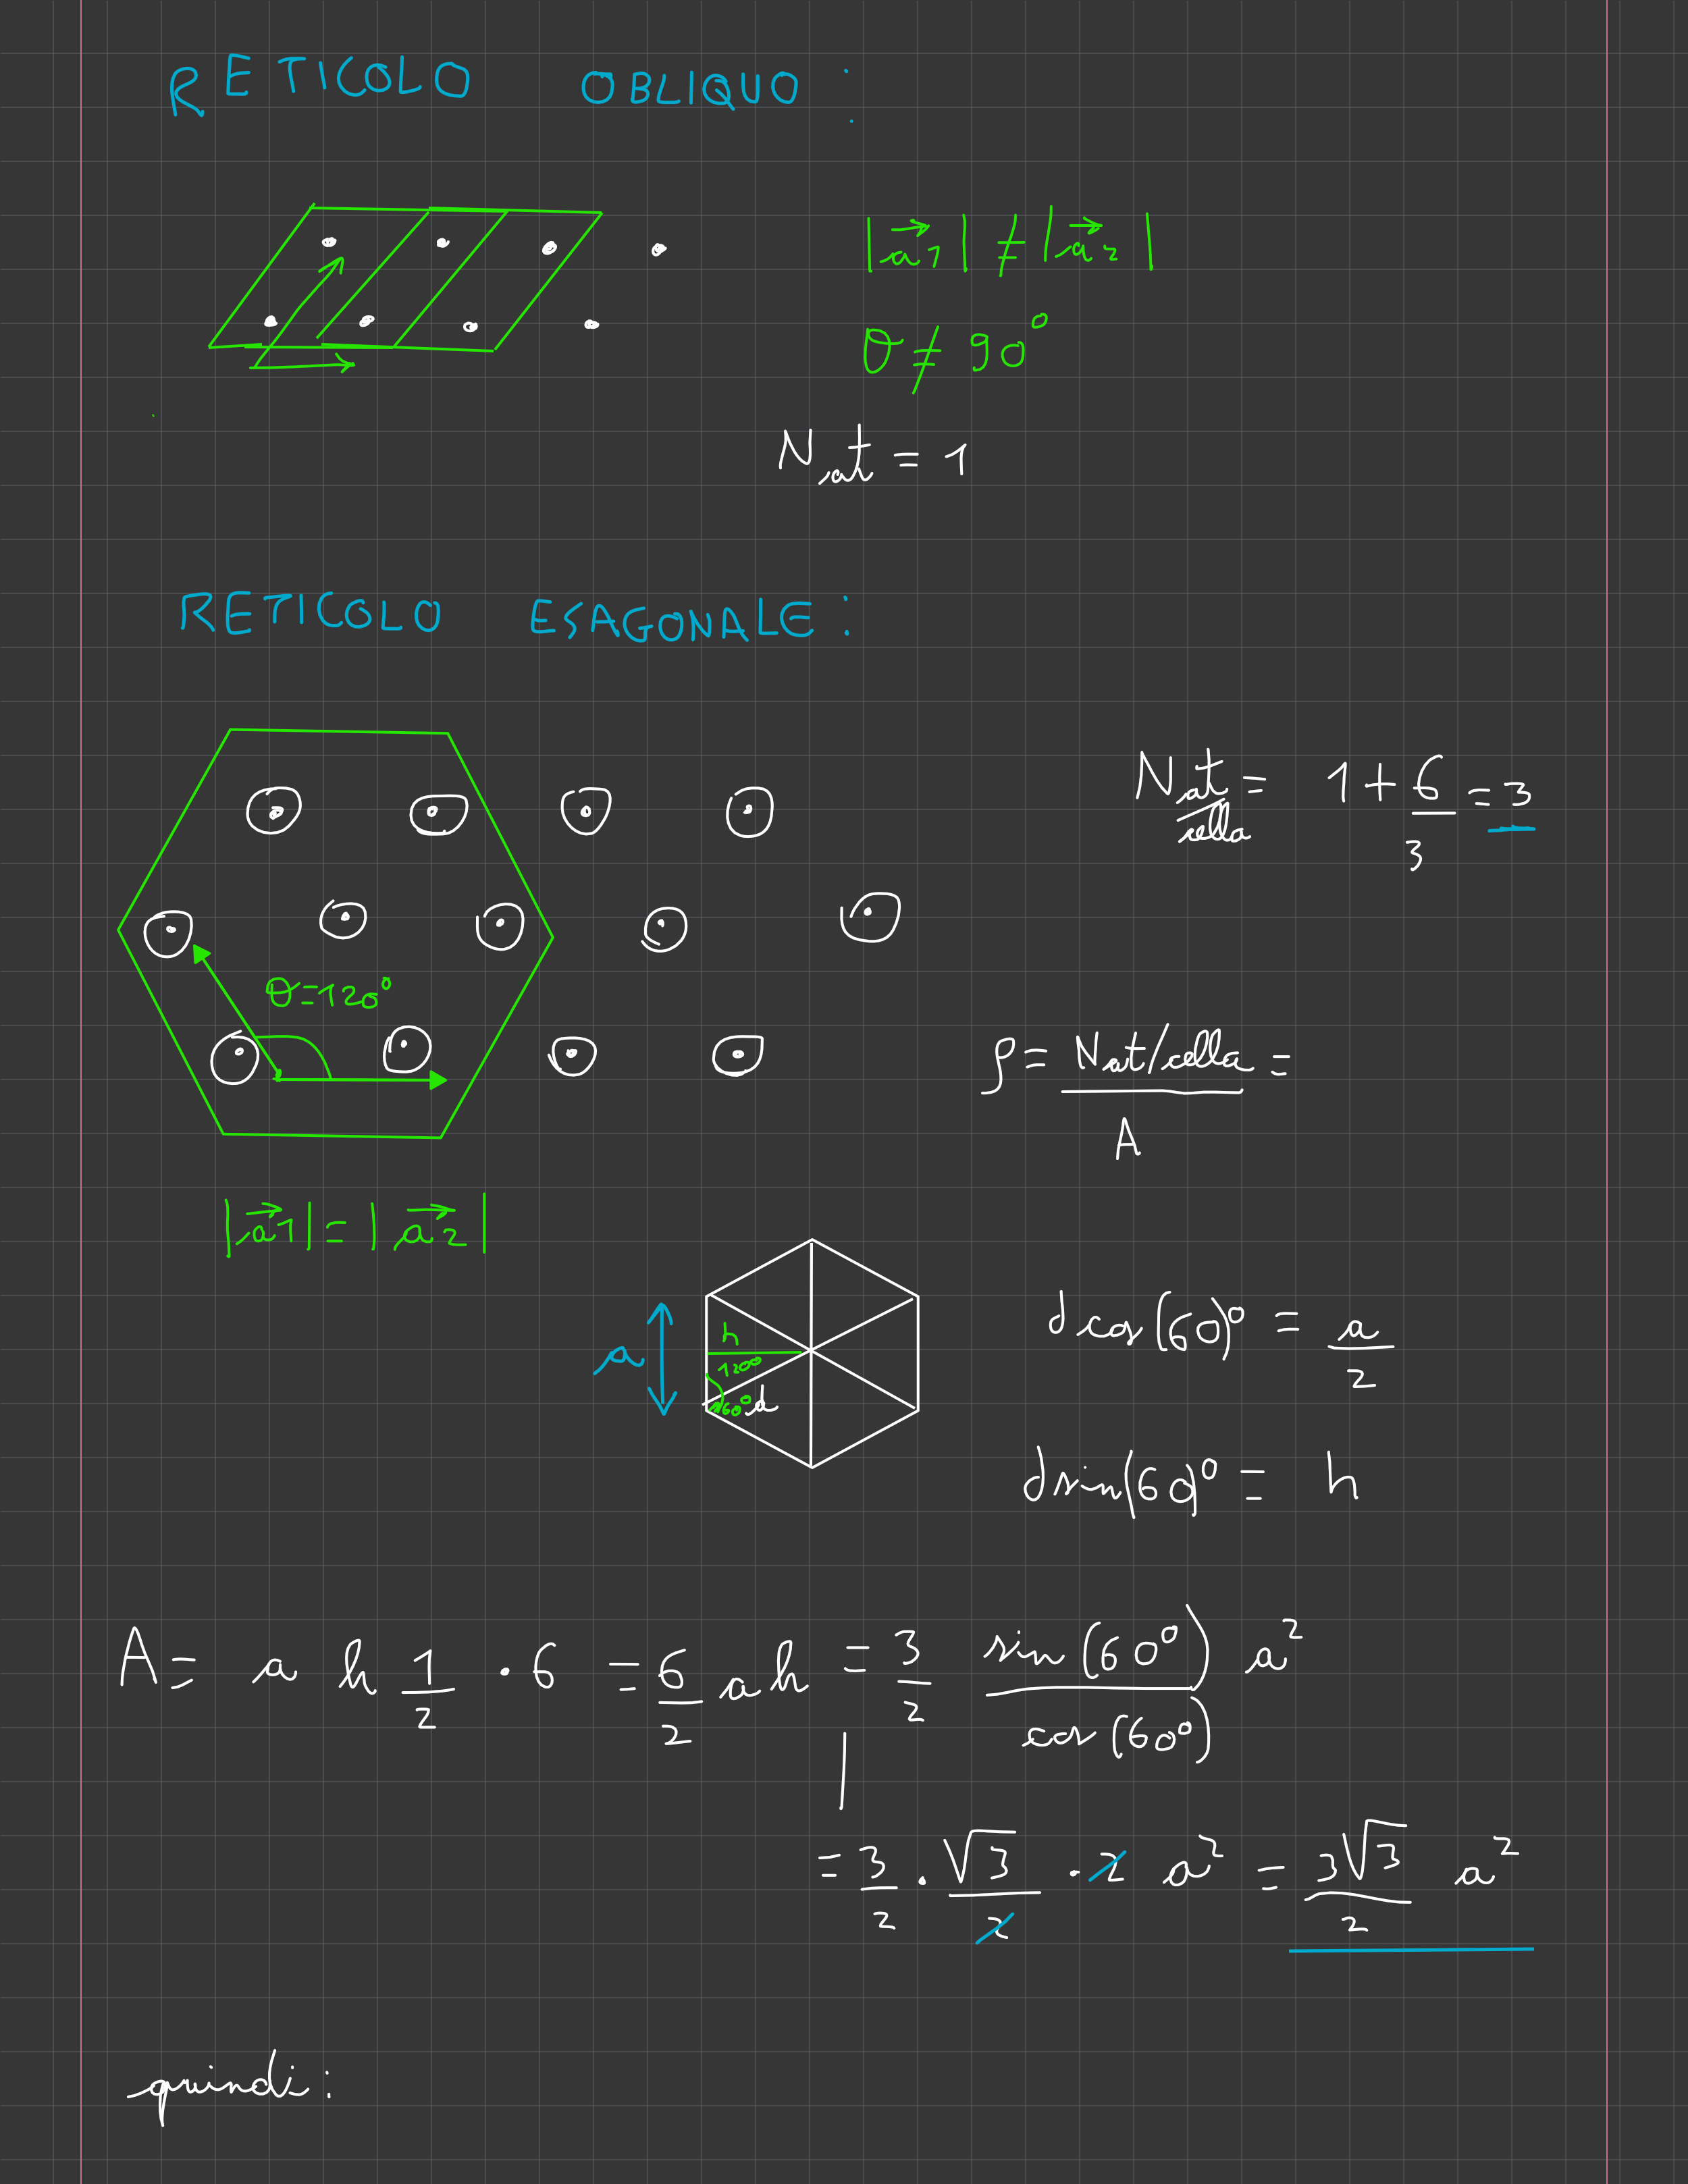 RETICOLO OBLIQUO :
|a⃗1| ≠ |a⃗2|
θ ≠ 90°
Nat = 1
RETICOLO ESAGONALE :
Nat/cella = 1 + 6/3 = 3
θ = 120°
ρ = Nat/cella / A =
|a⃗1| = |a⃗2|
a
h
120°
60°
d
d cos(60)° = a/2
d sin(60)° = h
A = a h 1/2 · 6 = 6/2 a h = 3/2 sin(60°)/cos(60°) a²
= 3/2 · √3/2 · 2 a² = 3√3/2 a²
quindi :